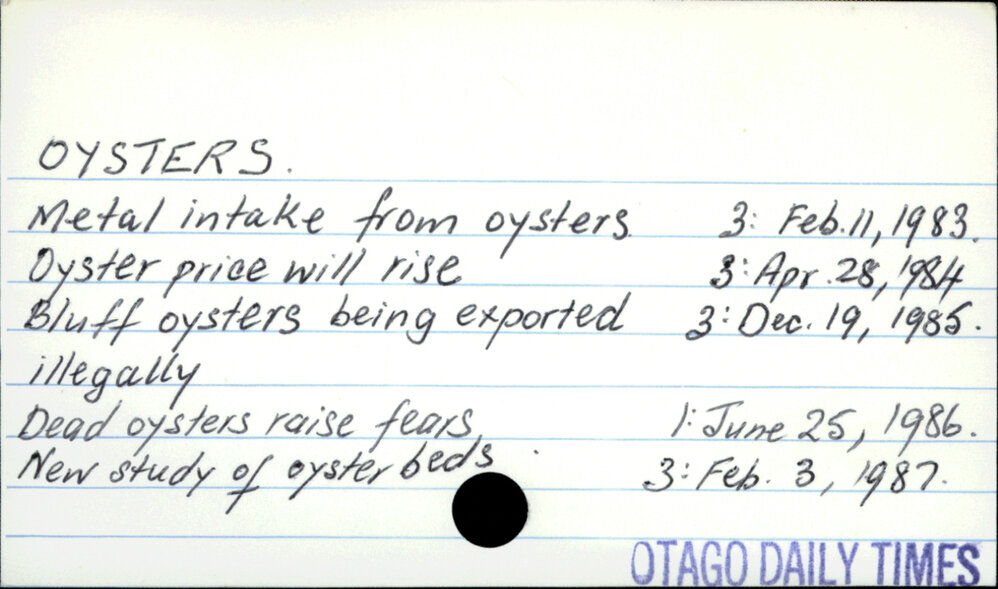 OYSTERS.
Metal intake from oysters 3: Feb. 11, 1983.
Oyster price will rise 3: Apr. 28, 1984
Bluff oysters being exported 3: Dec. 19, 1985.
illegally
Dead oysters raise fears 1: June 25, 1986.
New study of oyster beds 3: Feb. 3, 1987.
OTAGO DAILY TIMES